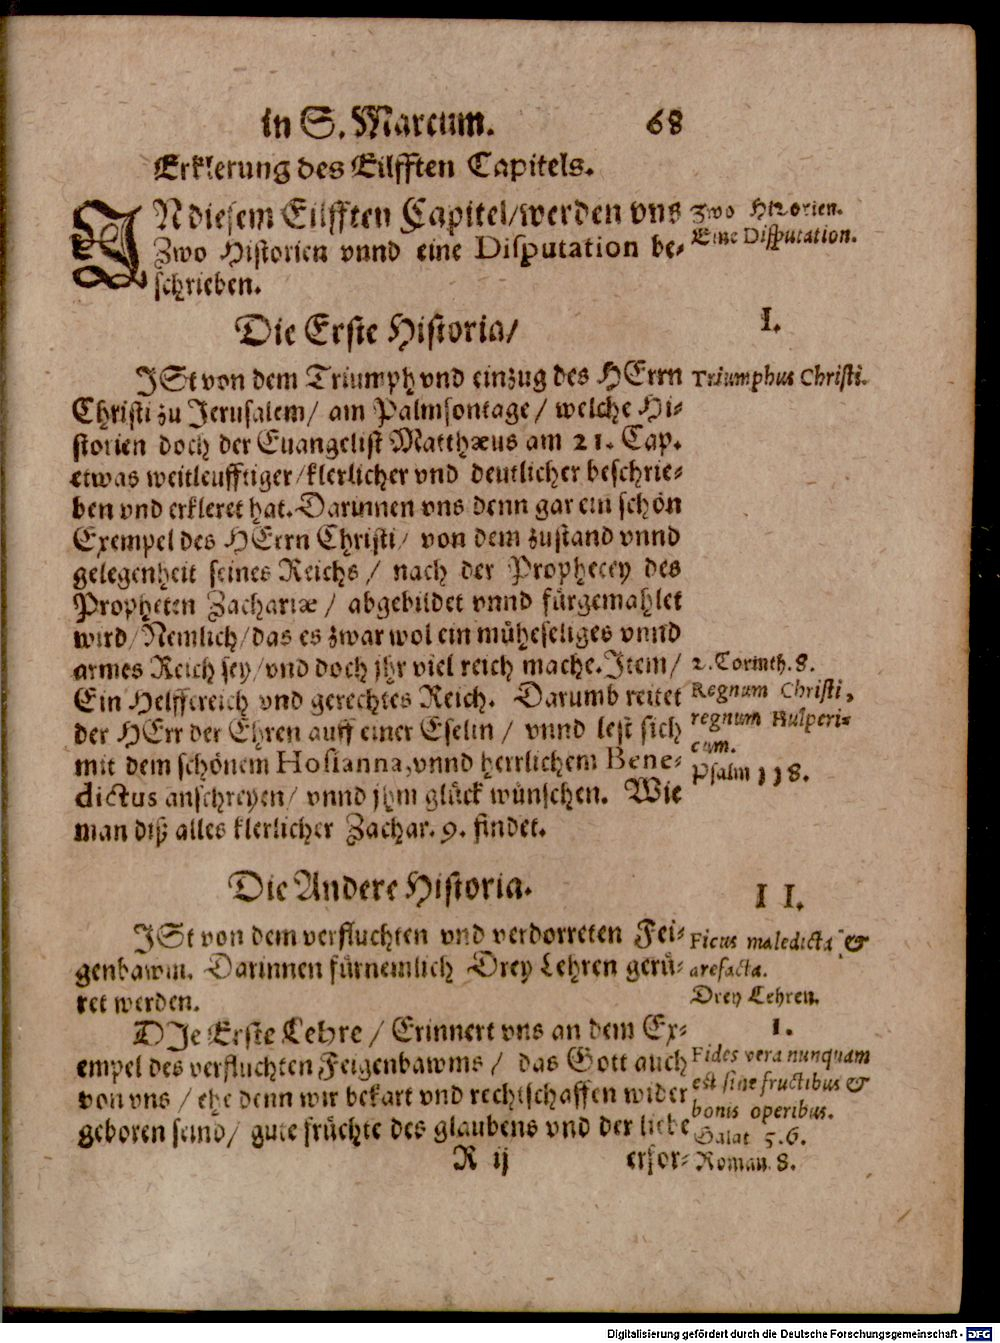 in S. Marcum. 68
Erklerung des Eilfften Capitels.
IN diesem Eilfften Capitel/werden vns
Zwo Historien vnnd eine Disputation be-
schrieben.
Zwo Historien.
Eine Disputation.
Die Erste Historia/
I.
ISt von dem Triumph vnd einzug des HErrn
Christi zu Jerusalem/ am Palmsontage/ welche Hi-
storien doch der Euangelist Matthæus am 21. Cap.
etwas weitleufftiger/klerlicher vnd deutlicher beschrie-
ben vnd erkleret hat. Darinnen vns denn gar ein schön
Exempel des HErrn Christi/ von dem zustand vnnd
gelegenheit seines Reichs/ nach der Prophecey des
Propheten Zachariæ/ abgebildet vnnd fürgemahlet
wird/Nemlich/das es zwar wol ein müheseliges vnnd
armes Reich sey/vnd doch jhr viel reich mache. Item/
Ein Helffereich vnd gerechtes Reich. Darumb reitet
der HErr der Ehren auff einer Eselin/ vnnd lest sich
mit dem schönem Hosianna, vnnd herrlichem Bene-
dictus anschreyen/ vnnd jhm glück wünschen. Wie
man diß alles klerlicher Zachar. 9. findet.
Triumphus Christi.
2. Corinth. 8.
Regnum Christi,
regnum Aulperi-
cum.
Psalm 118.
Die Andere Historia.
II.
ISt von dem verfluchten vnd verdorreten Fei-
genbawm. Darinnen fürnemlich Drey Lehren gerü-
ret werden.
Ficus maledicta &
arefacta.
Drey Lehren.
DIe Erste Lehre/ Erinnert vns an dem Ex-
empel des verfluchten Feigenbawms/ das Gott auch
von vns/ ehe denn wir bekart vnd rechtschaffen wider
geboren seind/ gute früchte des glaubens vnd der liebe
1.
Fides vera nunquam
est sine fructibus &
bonis operibus.
Galat 5.6.
Roman. 8.
R ij erfor-
Digitalisierung gefördert durch die Deutsche Forschungsgemeinschaft - DFG